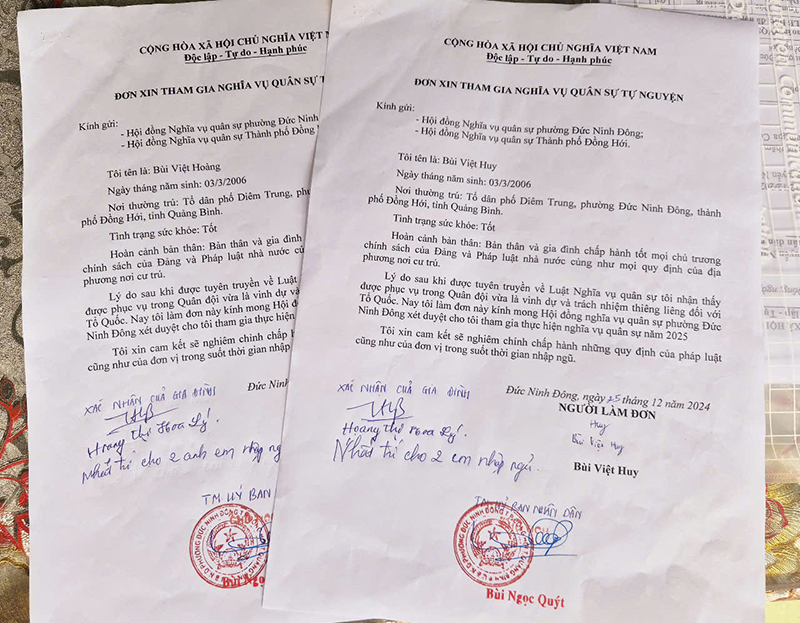 CỘNG HÒA XÃ HỘI CHỦ NGHĨA VIỆT N
Độc lập - Tự do - Hạnh phúc
ĐƠN XIN THAM GIA NGHĨA VỤ QUÂN SỰ T
Kính gửi:
- Hội đồng Nghĩa vụ quân sự phường Đức Ninh
- Hội đồng Nghĩa vụ quân sự Thành phố Đồng H
Tôi tên là: Bùi Việt Hoàng
Ngày tháng năm sinh: 03/3/2006
Nơi thường trú: Tổ dân phố Diêm Trung, phư
phố Đồng Hới, tỉnh Quảng Bình.
Tình trạng sức khỏe: Tốt
Hoàn cảnh bản thân: Bản thân và gia đình
chính sách của Đảng và Pháp luật nhà nước củ
phương nơi cư trú.
Lý do sau khi được tuyên truyền về Luật
được phục vụ trong Quân đội vừa là vinh dự và
Tổ Quốc. Nay tôi làm đơn này kính mong Hội đ
Ninh Đông xét duyệt cho tôi tham gia thực hiện
Tôi xin cam kết sẽ nghiêm chỉnh chấp h
cũng như của đơn vị trong suốt thời gian nhập
Đức Ninh
XÁC NHẬN CỦA GIA ĐÌNH
Hoàng Thị Hoa Lý
Nhất trí cho 2 anh em nhập ng
TM. UỶ BAN
Bùi Ngọc
CỘNG HÒA XÃ HỘI CHỦ NGHĨA VIỆT NAM
Độc lập - Tự do - Hạnh phúc
ĐƠN XIN THAM GIA NGHĨA VỤ QUÂN SỰ TỰ NGUYỆN
Kính gửi:
- Hội đồng Nghĩa vụ quân sự phường Đức Ninh Đông;
- Hội đồng Nghĩa vụ quân sự Thành phố Đồng Hới.
Tôi tên là: Bùi Việt Huy
Ngày tháng năm sinh: 03/3/2006
Nơi thường trú: Tổ dân phố Diêm Trung, phường Đức Ninh Đông, thành
phố Đồng Hới, tỉnh Quảng Bình.
Tình trạng sức khỏe: Tốt
Hoàn cảnh bản thân: Bản thân và gia đình chấp hành tốt mọi chủ trương
chính sách của Đảng và Pháp luật nhà nước củng như mọi quy định của địa
phương nơi cư trú.
Lý do sau khi được tuyên truyền về Luật Nghĩa vụ quân sự tôi nhận thấy
được phục vụ trong Quân đội vừa là vinh dự và trách nhiệm thiêng liêng đối với
Tổ Quốc. Nay tôi làm đơn này kính mong Hội đồng nghĩa vụ quân sự phường Đức
Ninh Đông xét duyệt cho tôi tham gia thực hiện nghĩa vụ quân sự năm 2025
Tôi xin cam kết sẽ nghiêm chỉnh chấp hành những quy định của pháp luật
cũng như của đơn vị trong suốt thời gian nhập ngũ.
Đức Ninh Đông, ngày 25 tháng 12 năm 2024
XÁC NHẬN CỦA GIA ĐÌNH
NGƯỜI LÀM ĐƠN
Huy
Bùi Việt Huy
Hoàng Thị Hoa Lý
Nhất trí cho 2 em nhập ngũ.
Bùi Việt Huy
TM. UỶ BAN NHÂN DÂN
Bùi Ngọc Quýt